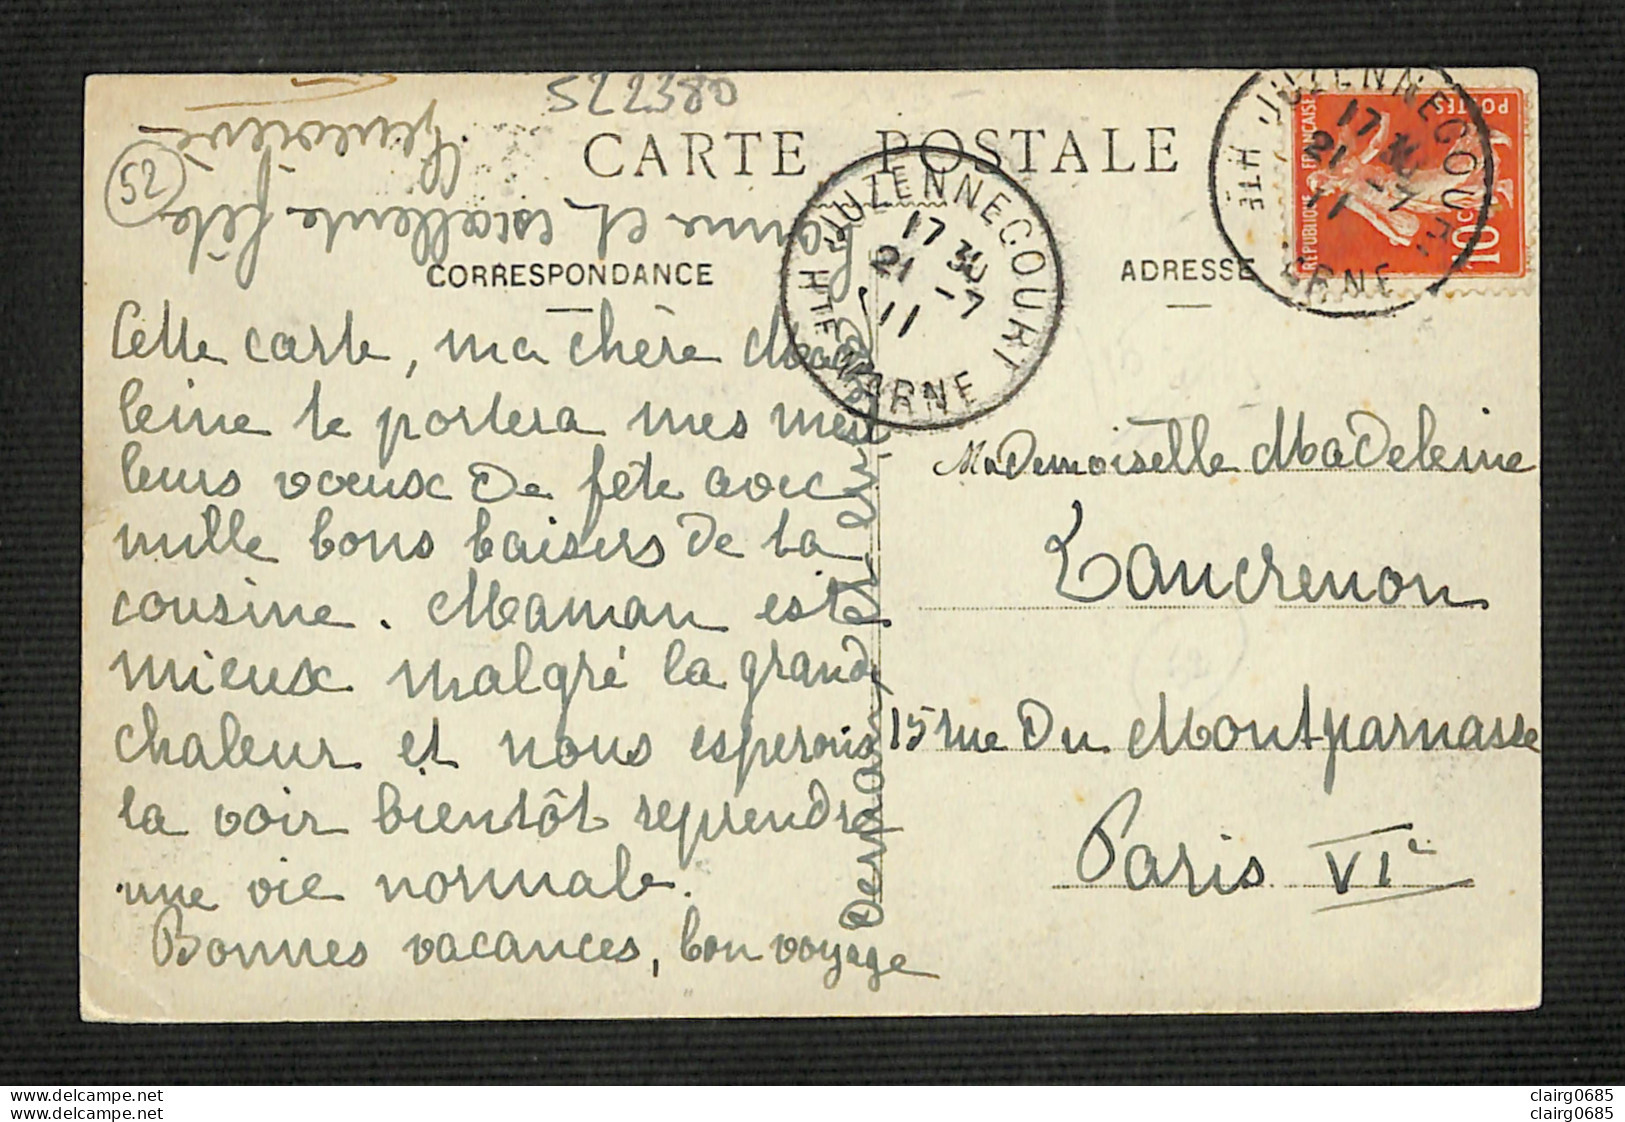 522380
52
CARTE POSTALE
CORRESPONDANCE
ADRESSE
JUZENNECOURT
17 30
21 -7
11
HTE MARNE
JUZENNECOURT
17 30
21 -7
11
HTE MARNE
POSTES
REPUBLIQUE FRANÇAISE
10 c
Cette carte, ma chère Made
leine te portera mes meil
leurs voeux de fête avec
mille bons baisers de ta
cousine. Maman est
mieux malgré la grande
chaleur et nous esperons
la voir bientôt reprendre
une vie normale.
Bonnes vacances, bon voyage
Demande
bonne et excellente fête
Geneviève
Mademoiselle Madeleine
Lancrenon
15 rue du Montparnasse
Paris VIe
delcampe.net
delcampe.net
clairg0685
clairg0685